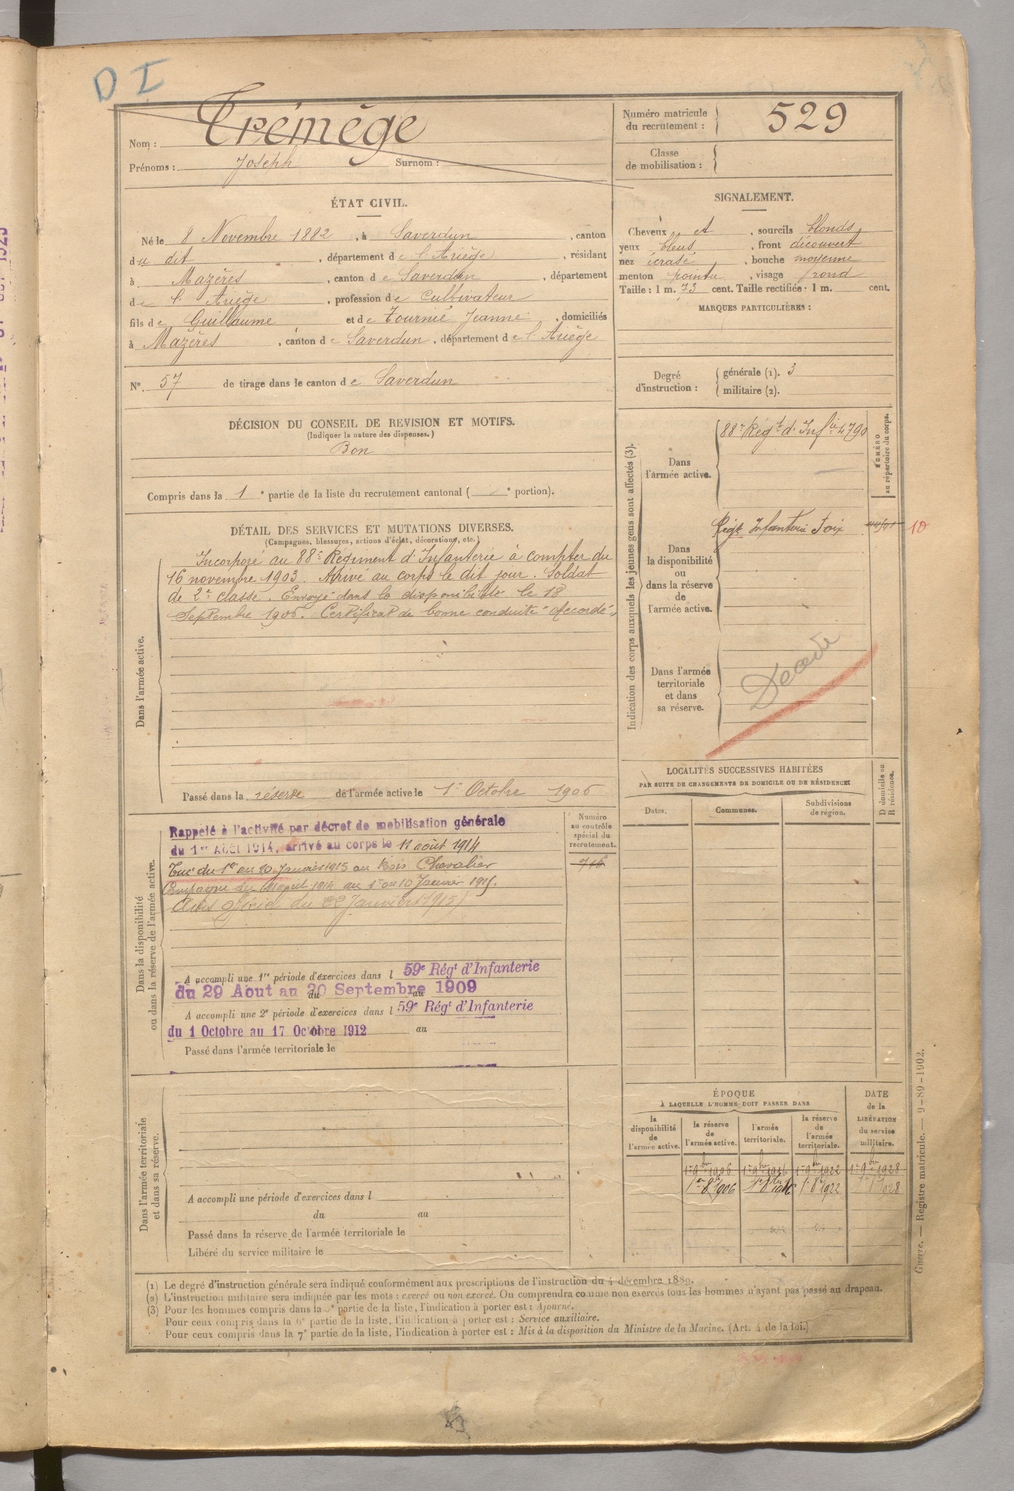 D I
Nom : Trémège
Prénoms : Joseph Surnom :
Numéro matricule du recrutement : 529
Classe de mobilisation :
ÉTAT CIVIL.
Né le 8 Novembre 1882, à Saverdun, canton
du dit, département de l'Ariège, résidant
à Mazères, canton de Saverdun, département
de l'Ariège, profession de Cultivateur
fils de Guillaume et de Tournié Jeanne, domiciliés
à Mazères, canton de Saverdun, département de l'Ariège
N° 57 de tirage dans le canton de Saverdun
SIGNALEMENT.
Cheveux et, sourcils blonds
yeux bleus, front découvert
nez écrasé, bouche moyenne
menton pointu, visage rond
Taille : 1 m. 73 cent. Taille rectifiée : 1 m. cent.
MARQUES PARTICULIÈRES :
Degré d'instruction : générale (1). 3
militaire (2).
DÉCISION DU CONSEIL DE REVISION ET MOTIFS.
(Indiquer la nature des dispenses.)
Bon
Compris dans la 1e partie de la liste du recrutement cantonal ( e portion).
DÉTAIL DES SERVICES ET MUTATIONS DIVERSES.
(Campagnes, blessures, actions d'éclat, décorations, etc.)
Dans l'armée active.
Incorporé au 88e Régiment d'Infanterie à compter du
16 novembre 1903. Arrivé au corps le dit jour. Soldat
de 2e classe. Envoyé dans la disponibilité le 18
Septembre 1906. Certificat de bonne conduite "Accordé"
Passé dans la réserve de l'armée active le 1er Octobre 1906
Indication des corps auxquels les jeunes gens sont affectés (3).
Dans l'armée active.
88e Régt d'Infie 4790
NUMÉRO au répertoire du corps.
Dans la disponibilité ou dans la réserve de l'armée active.
Régt Infanterie Foix
10
Dans l'armée territoriale et dans sa réserve.
Décédé
LOCALITÉS SUCCESSIVES HABITÉES
PAR SUITE DE CHANGEMENTS DE DOMICILE OU DE RÉSIDENCE
Dates. Communes. Subdivisions de région. D domicile ou R résidence.
Dans la disponibilité ou dans la réserve de l'armée active.
Numéro au contrôle spécial du recrutement.
Rappelé à l'activité par décret de mobilisation générale
du 1er Août 1914, arrivé au corps le 11 août 1914
Tué du 1er au 20 Janvier 1915 au Bois Chevalier
A accompli une 1re période d'exercices dans l 59e Régt d'Infanterie
du 29 Aout au 20 Septembre 1909
A accompli une 2e période d'exercices dans l 59e Régt d'Infanterie
du 1 Octobre au 17 Octobre 1912
Passé dans l'armée territoriale le
Dans l'armée territoriale et dans sa réserve.
A accompli une période d'exercices dans l
du au
Passé dans la réserve de l'armée territoriale le
Libéré du service militaire le
ÉPOQUE
À LAQUELLE L'HOMME DOIT PASSER DANS
la disponibilité de l'armée active. la réserve de l'armée active. l'armée territoriale. la réserve de l'armée territoriale.
DATE de la LIBÉRATION du service militaire.
(1) Le degré d'instruction générale sera indiqué conformément aux prescriptions de l'instruction du 4 décembre 1889.
(2) L'instruction militaire sera indiquée par les mots : exercé ou non exercé. On comprendra comme non exercés tous les hommes n'ayant pas passé au drapeau.
(3) Pour les hommes compris dans la partie de la liste, l'indication à porter est : Ajourné.
Pour ceux compris dans la 6e partie de la liste, l'indication à porter est : Service auxiliaire.
Pour ceux compris dans la 7e partie de la liste, l'indication à porter est : Mis à la disposition du Ministre de la Marine. (Art. 4 de la loi.)
Guerre. — Registre matricule. — 9-89-1902.